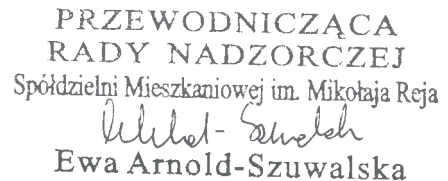 PRZEWODNICZĄCA
RADY NADZORCZEJ
Spółdzielni Mieszkaniowej im. Mikołaja Reja
Ewa Arnold-Szuwalska